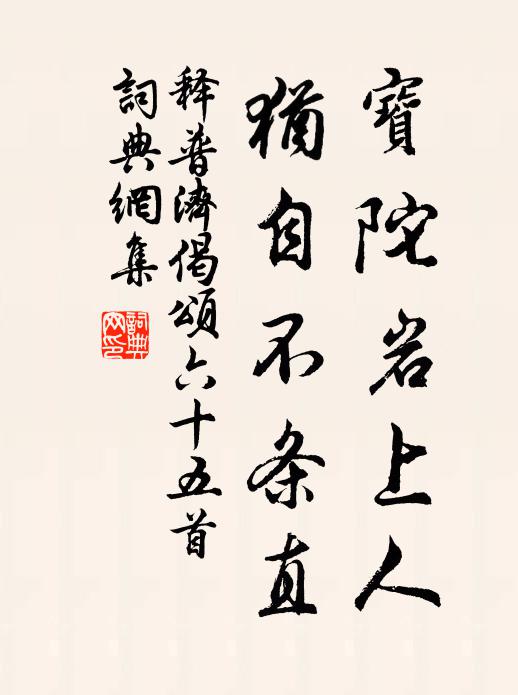 寶陀岩上人
猶自不条直
释普濟偈頌六十五首
詞典網集
詞典網印